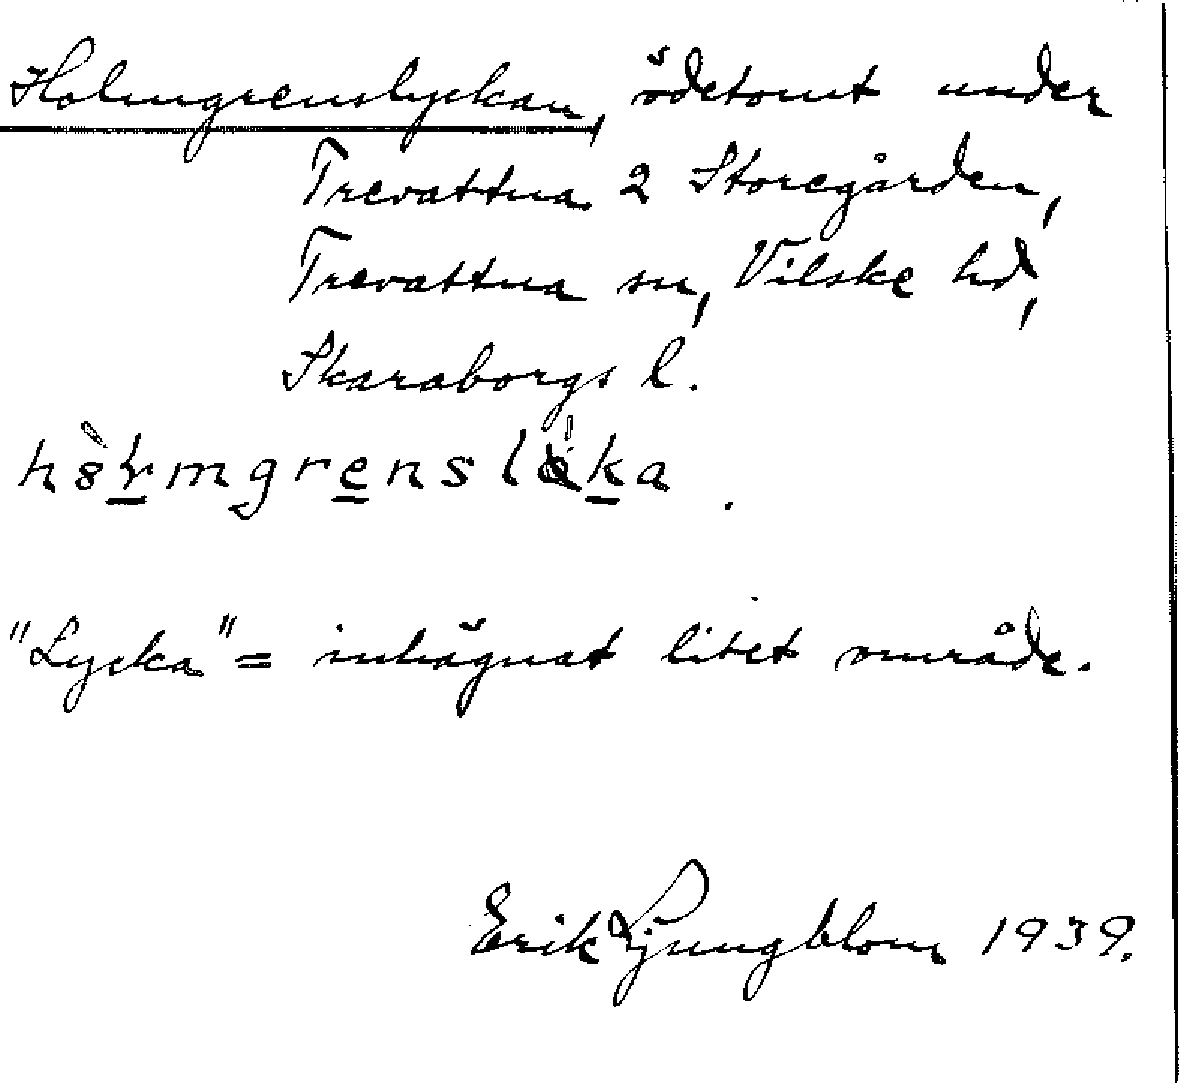 Holmgrenslyckan, ödetomt under
Trevattna 2 Storegården,
Trevattna sn, Vilske hd,
Skaraborgs l.
"Lycka" = inhägnat litet område.
Erik Ljungblom 1939.